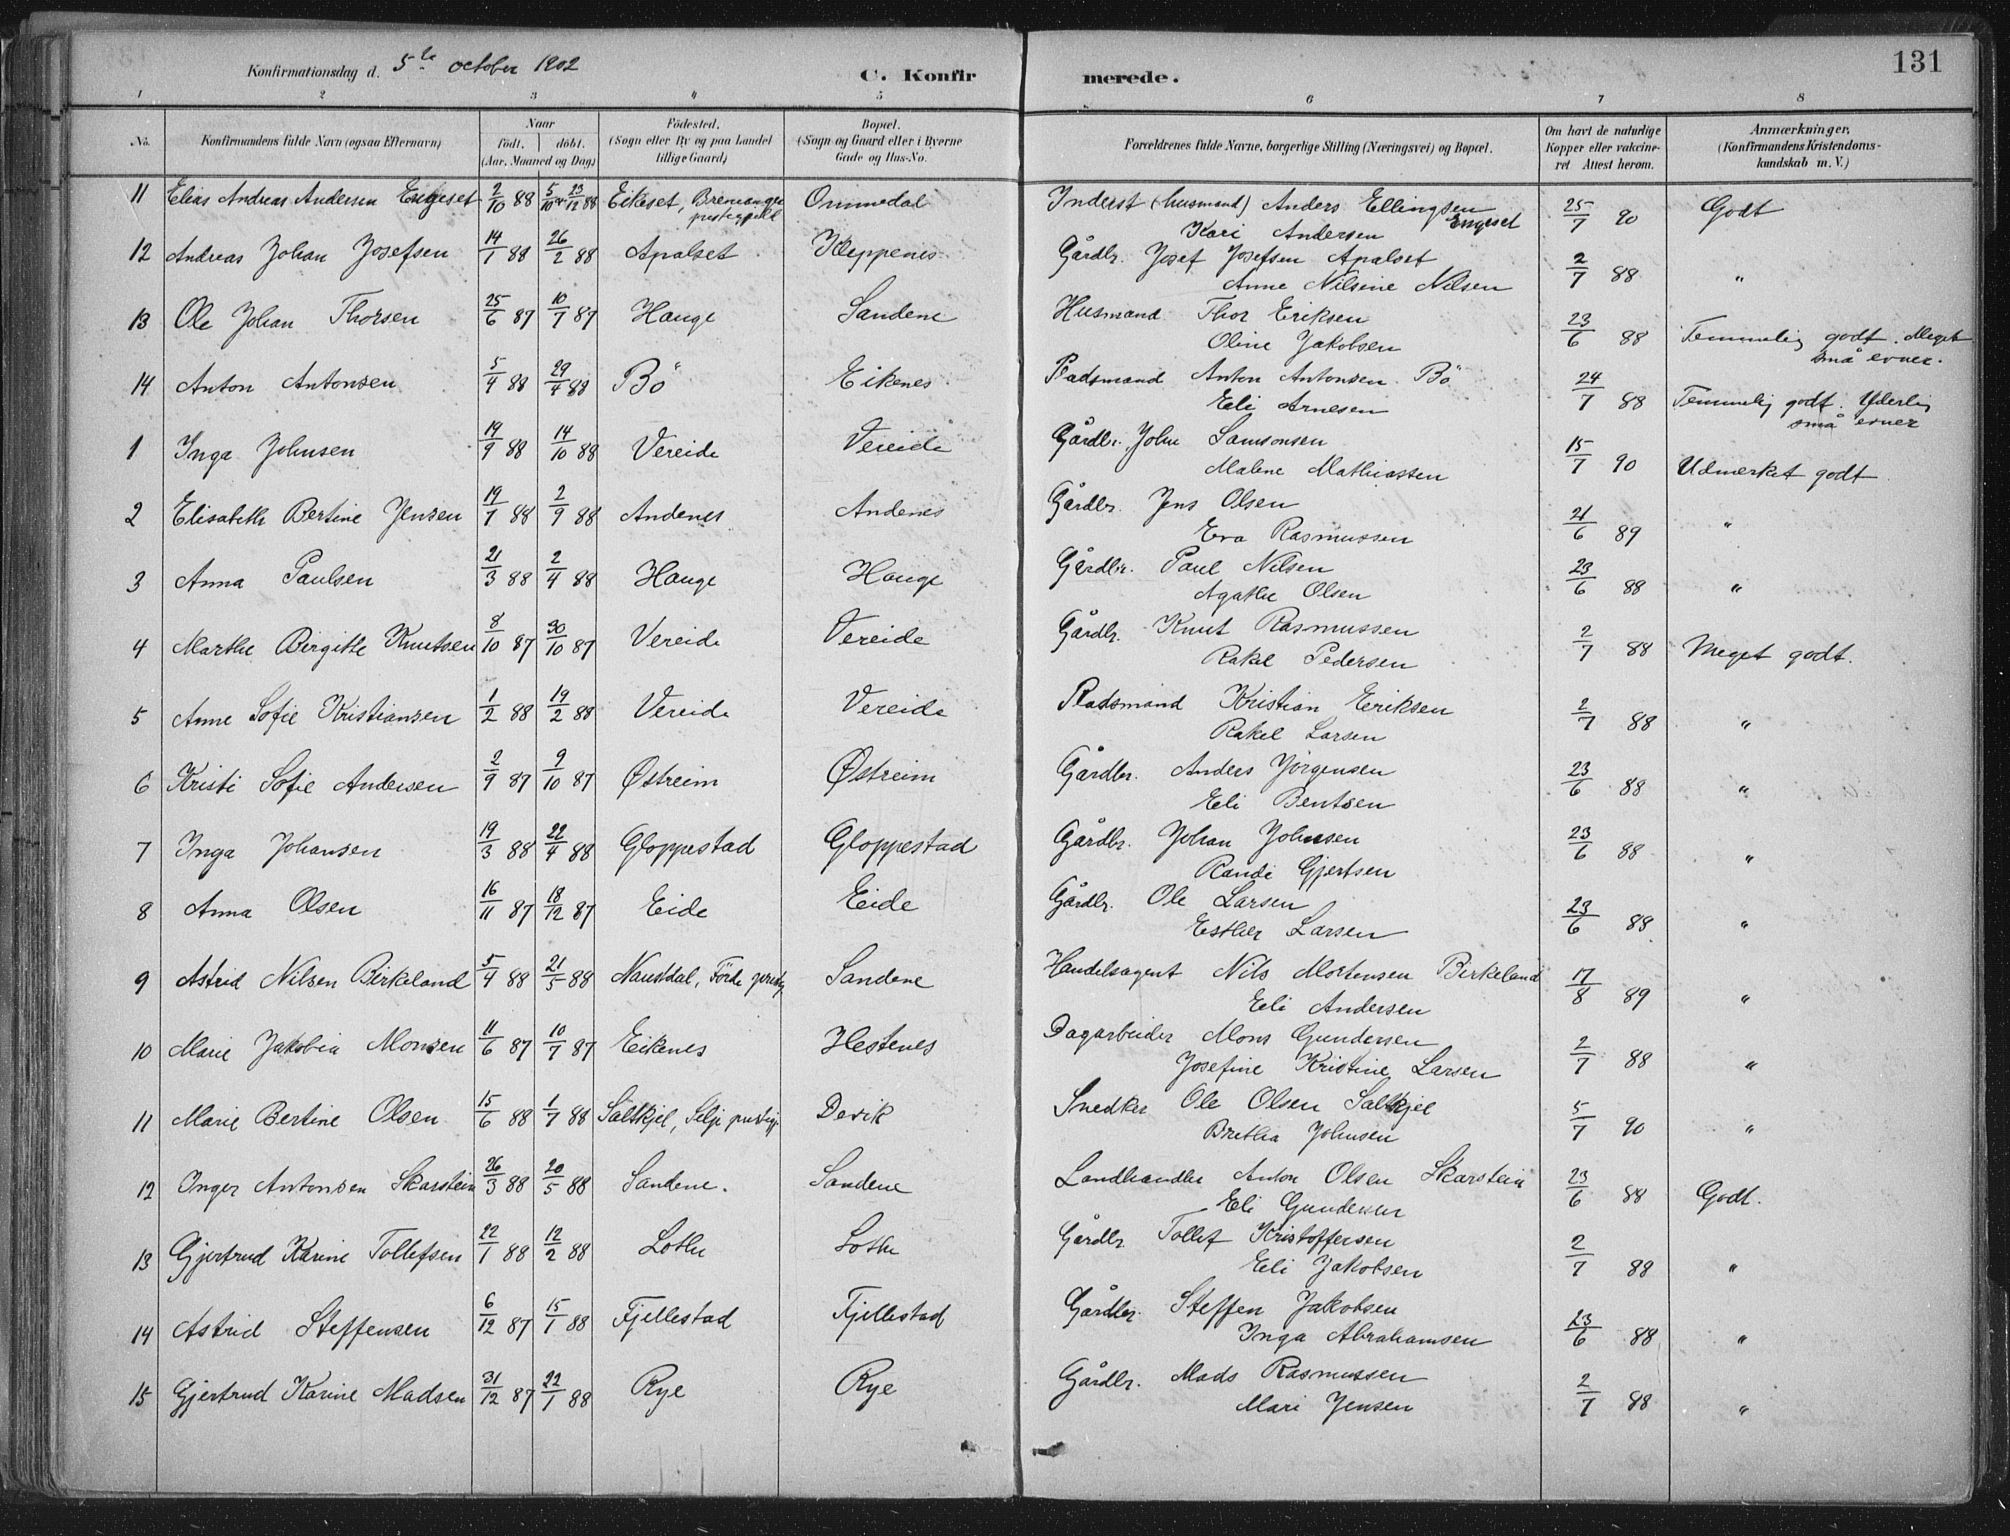 Konfirmationsdag d. 5te october 1902
C. Konfirmerede.
131
1 2 3 4 5 6 7 8
No. Konfirmandens fulde Navn (ogsaa Efternavn) Naar født, døbt. (Aar, Maaned og Dag) Fødested, (Sogn eller By og paa Landet tillige Gaard) Bopæl. (Sogn og Gaard eller i Byerne Gade og Hus-No. Forældrenes fulde Navne, borgerlige Stilling (Næringsvei) og Bopæl. Om havt de naturlige Kopper eller vakcineret Attest herom. Anmærkninger, (Konfirmandens Kristendomskundskab m. V.)
11 Elias Andreas Andersen Engeset 2/10 88 5/10 23/12 88 Eikeset, Bremanger prestegjeld Ommedal Inderst (husmand) Anders Ellingsen Engeset 25/7 90 Godt
Kari Andersen
12 Andreas Johan Josefsen 14/1 88 26/2 88 Apalset Kleppenes Gårdbr. Josef Josefsen Apalset 2/7 88 "
Anne Nilsine Nilsen
13 Ole Johan Thorsen 25/6 87 10/7 87 Hauge Sandene Husmand Thor Eriksen 23/6 88 Temmelig godt. Meget små evner.
Oline Jakobsen
14 Anton Antonsen 5/4 88 29/4 88 Bö Eikenes Pladsmand Anton Antonsen Bö 24/7 88 Temmelig godt. Yderlig små evner
Eli Arnesen
1 Inga Johnsen 19/9 88 14/10 88 Vereide Vereide Gårdbr. John Samsonsen 15/7 90 Udmerket godt
Malene Mathiassen
2 Elisabeth Bertine Jensen 19/7 88 2/9 88 Andenes Andenes Gårdbr. Jens Olsen 21/6 89 "
Eva Rasmussen
3 Anna Paulsen 21/3 88 2/4 88 Hauge Hauge Gårdbr. Paul Nilsen 23/6 88 "
Agathe Olsen
4 Marthe Birgitte Knutsen 8/10 87 30/10 87 Vereide Vereide Gårdbr. Knut Rasmussen 2/7 88 Meget godt.
Rakel Pedersen
5 Anne Sofie Kristiansen 1/2 88 19/2 88 Vereide Vereide Pladsmand Kristian Eriksen 2/7 88 "
Rakel Larsen
6 Kristi Sofie Andersen 2/9 87 9/10 87 Østreim Østreim Gårdbr. Anders Jörgensen 23/6 88 "
Eli Bentsen
7 Inga Johansen 19/3 88 22/4 88 Gloppestad Gloppestad Gårdbr. Johan Johnsen 23/6 88 "
Randi Gjertsen
8 Anna Olsen 16/11 87 18/12 87 Eide Eide Gårdbr. Ole Larsen 23/6 88 "
Esther Larsen
9 Astrid Nilsen Birkeland 5/4 88 21/5 88 Naustdal, Förde Sandene Handelsagent Nils Mortensen Birkeland 17/8 89 "
Eli Andersen
10 Marie Jakobia Monsen 11/6 87 10/7 87 Eikenes Hestenes Dagarbeider Mons Gundersen 2/7 88 "
Josefine Kristine Larsen
11 Marie Bertine Olsen 15/6 88 1/7 88 Saltkjel, Selje prestegj. Devik Snedker Ole Olsen Saltkjel 5/7 90 "
Bretha Johnsen
12 Inger Antonsen Skarstein 26/3 88 20/5 88 Sandene. Sandene Landhandler Anton Olsen Skarstein 23/6 88 Godt.
Eli Gundersen
13 Gjertrud Karine Tollefsen 22/1 88 12/2 88 Lothe Lothe Gårdbr. Tollef Kristoffersen 2/7 88 "
Eli Jakobsen
14 Astrid Steffensen 6/12 87 15/1 88 Fjellestad Fjellestad Gårdbr. Steffen Jakobsen 23/6 88 "
Inga Abrahamsen
15 Gjertrud Karine Madsen 31/12 87 22/1 88 Rye Rye Gårdbr. Mads Rasmussen 2/7 88 "
Mari Jensen